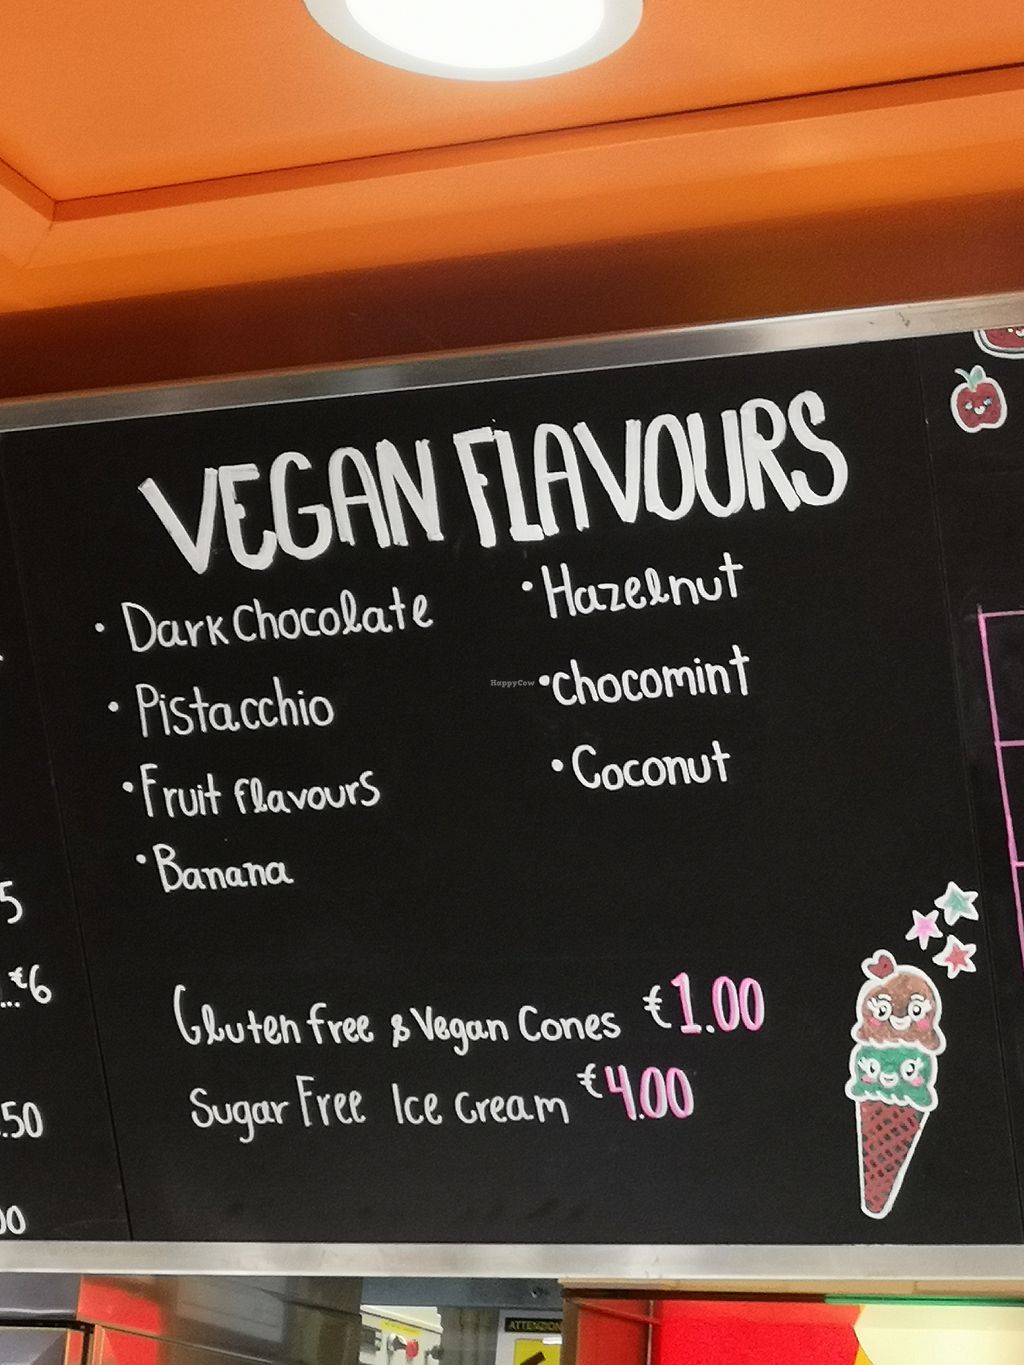 VEGAN FLAVOURS
• Dark chocolate
• Pistacchio
• Fruit flavours
• Banana
• Hazelnut
• chocomint
• Coconut
Gluten free & Vegan Cones €1.00
Sugar Free Ice cream €4.00
HappyCow
5
...€6
.50
00
ATTENZION